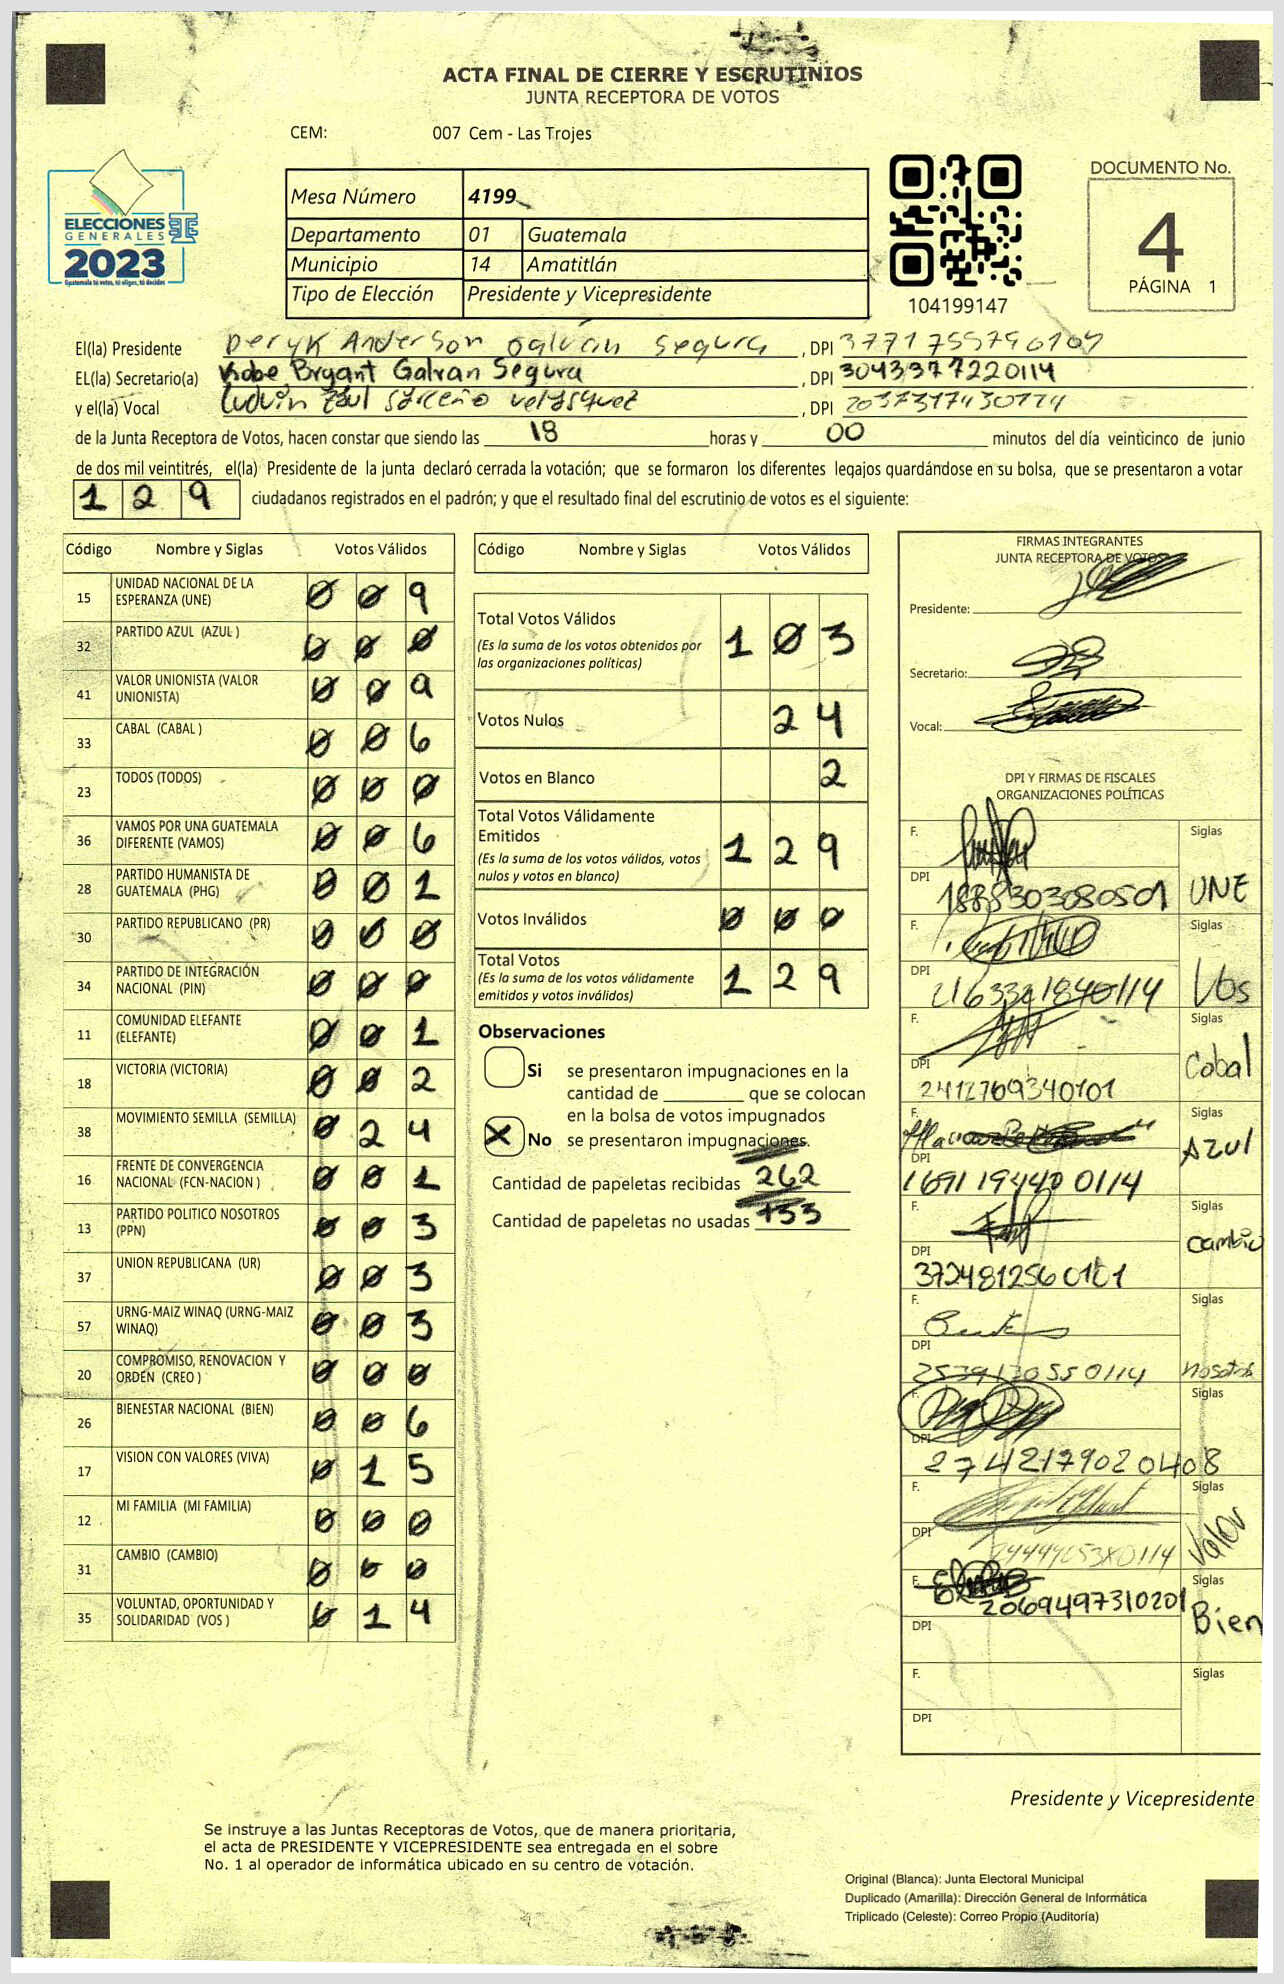 ACTA FINAL DE CIERRE Y ESCRUTINIOS
JUNTA RECEPTORA DE VOTOS
CEM: 007 Cem - Las Trojes
ELECCIONES
GENERALES
2023
Guatemala tú votas, tú eliges, tú decides
Mesa Número 4199
Departamento 01 Guatemala
Municipio 14 Amatitlán
Tipo de Elección Presidente y Vicepresidente
104199147
DOCUMENTO No.
4
PÁGINA 1
El(la) Presidente Deryk Anderson Segura , DPI
EL(la) Secretario(a) Kobe Bryant Galvan Segura , DPI 3043377220114
y el(la) Vocal , DPI
de la Junta Receptora de Votos, hacen constar que siendo las 18 horas y 00 minutos del día veinticinco de junio
de dos mil veintitrés, el(la) Presidente de la junta declaró cerrada la votación; que se formaron los diferentes legajos quardándose en su bolsa, que se presentaron a votar
1 2 9 ciudadanos registrados en el padrón; y que el resultado final del escrutinio de votos es el siguiente:
Código Nombre y Siglas Votos Válidos
15 UNIDAD NACIONAL DE LA ESPERANZA (UNE) 0 0 9
32 PARTIDO AZUL (AZUL ) 0 0 0
41 VALOR UNIONISTA (VALOR UNIONISTA) 0 0 9
33 CABAL (CABAL ) 0 0 6
23 TODOS (TODOS) 0 0 0
36 VAMOS POR UNA GUATEMALA DIFERENTE (VAMOS) 0 0 6
28 PARTIDO HUMANISTA DE GUATEMALA (PHG) 0 0 1
30 PARTIDO REPUBLICANO (PR) 0 0 0
34 PARTIDO DE INTEGRACIÓN NACIONAL (PIN) 0 0 0
11 COMUNIDAD ELEFANTE (ELEFANTE) 0 0 1
18 VICTORIA (VICTORIA) 0 0 2
38 MOVIMIENTO SEMILLA (SEMILLA) 0 2 4
16 FRENTE DE CONVERGENCIA NACIONAL (FCN-NACION ) 0 0 1
13 PARTIDO POLITICO NOSOTROS (PPN) 0 0 3
37 UNION REPUBLICANA (UR) 0 0 3
57 URNG-MAIZ WINAQ (URNG-MAIZ WINAQ) 0 0 3
20 COMPROMISO, RENOVACION Y ORDEN (CREO ) 0 0 0
26 BIENESTAR NACIONAL (BIEN) 0 0 6
17 VISION CON VALORES (VIVA) 0 1 5
12 MI FAMILIA (MI FAMILIA) 0 0 0
31 CAMBIO (CAMBIO) 0 0 0
35 VOLUNTAD, OPORTUNIDAD Y SOLIDARIDAD (VOS ) 0 1 4
Código Nombre y Siglas Votos Válidos
Total Votos Válidos 1 0 3
(Es la suma de los votos obtenidos por
las organizaciones políticas)
Votos Nulos 2 4
Votos en Blanco 2
Total Votos Válidamente
Emitidos 1 2 9
(Es la suma de los votos válidos, votos
nulos y votos en blanco)
Votos Inválidos 0 0 0
Total Votos 1 2 9
(Es la suma de los votos válidamente
emitidos y votos inválidos)
Observaciones
Si se presentaron impugnaciones en la
cantidad de ________ que se colocan
en la bolsa de votos impugnados
X No se presentaron impugnaciones.
Cantidad de papeletas recibidas 262
Cantidad de papeletas no usadas
FIRMAS INTEGRANTES
JUNTA RECEPTORA DE VOTOS
Presidente:
Secretario:
Vocal:
DPI Y FIRMAS DE FISCALES
ORGANIZACIONES POLÍTICAS
F. Siglas
DPI 1888303080501 UNE
F. Siglas
DPI Vos
F. Siglas
DPI 2412769340101 Cabal
F. Siglas
DPI 1691194400114 AZUL
F. Siglas
DPI 3724812560101 cambio
F. Siglas
DPI 2539130550114 nosotros
F. Siglas
DPI 2742179020408
F. Siglas
DPI Valor
F. Siglas
2069497310201 Bien
DPI
F. Siglas
DPI
Presidente y Vicepresidente
Se instruye a las Juntas Receptoras de Votos, que de manera prioritaria,
el acta de PRESIDENTE Y VICEPRESIDENTE sea entregada en el sobre
No. 1 al operador de informática ubicado en su centro de votación.
Original (Blanca): Junta Electoral Municipal
Duplicado (Amarilla): Dirección General de Informática
Triplicado (Celeste): Correo Propio (Auditoría)